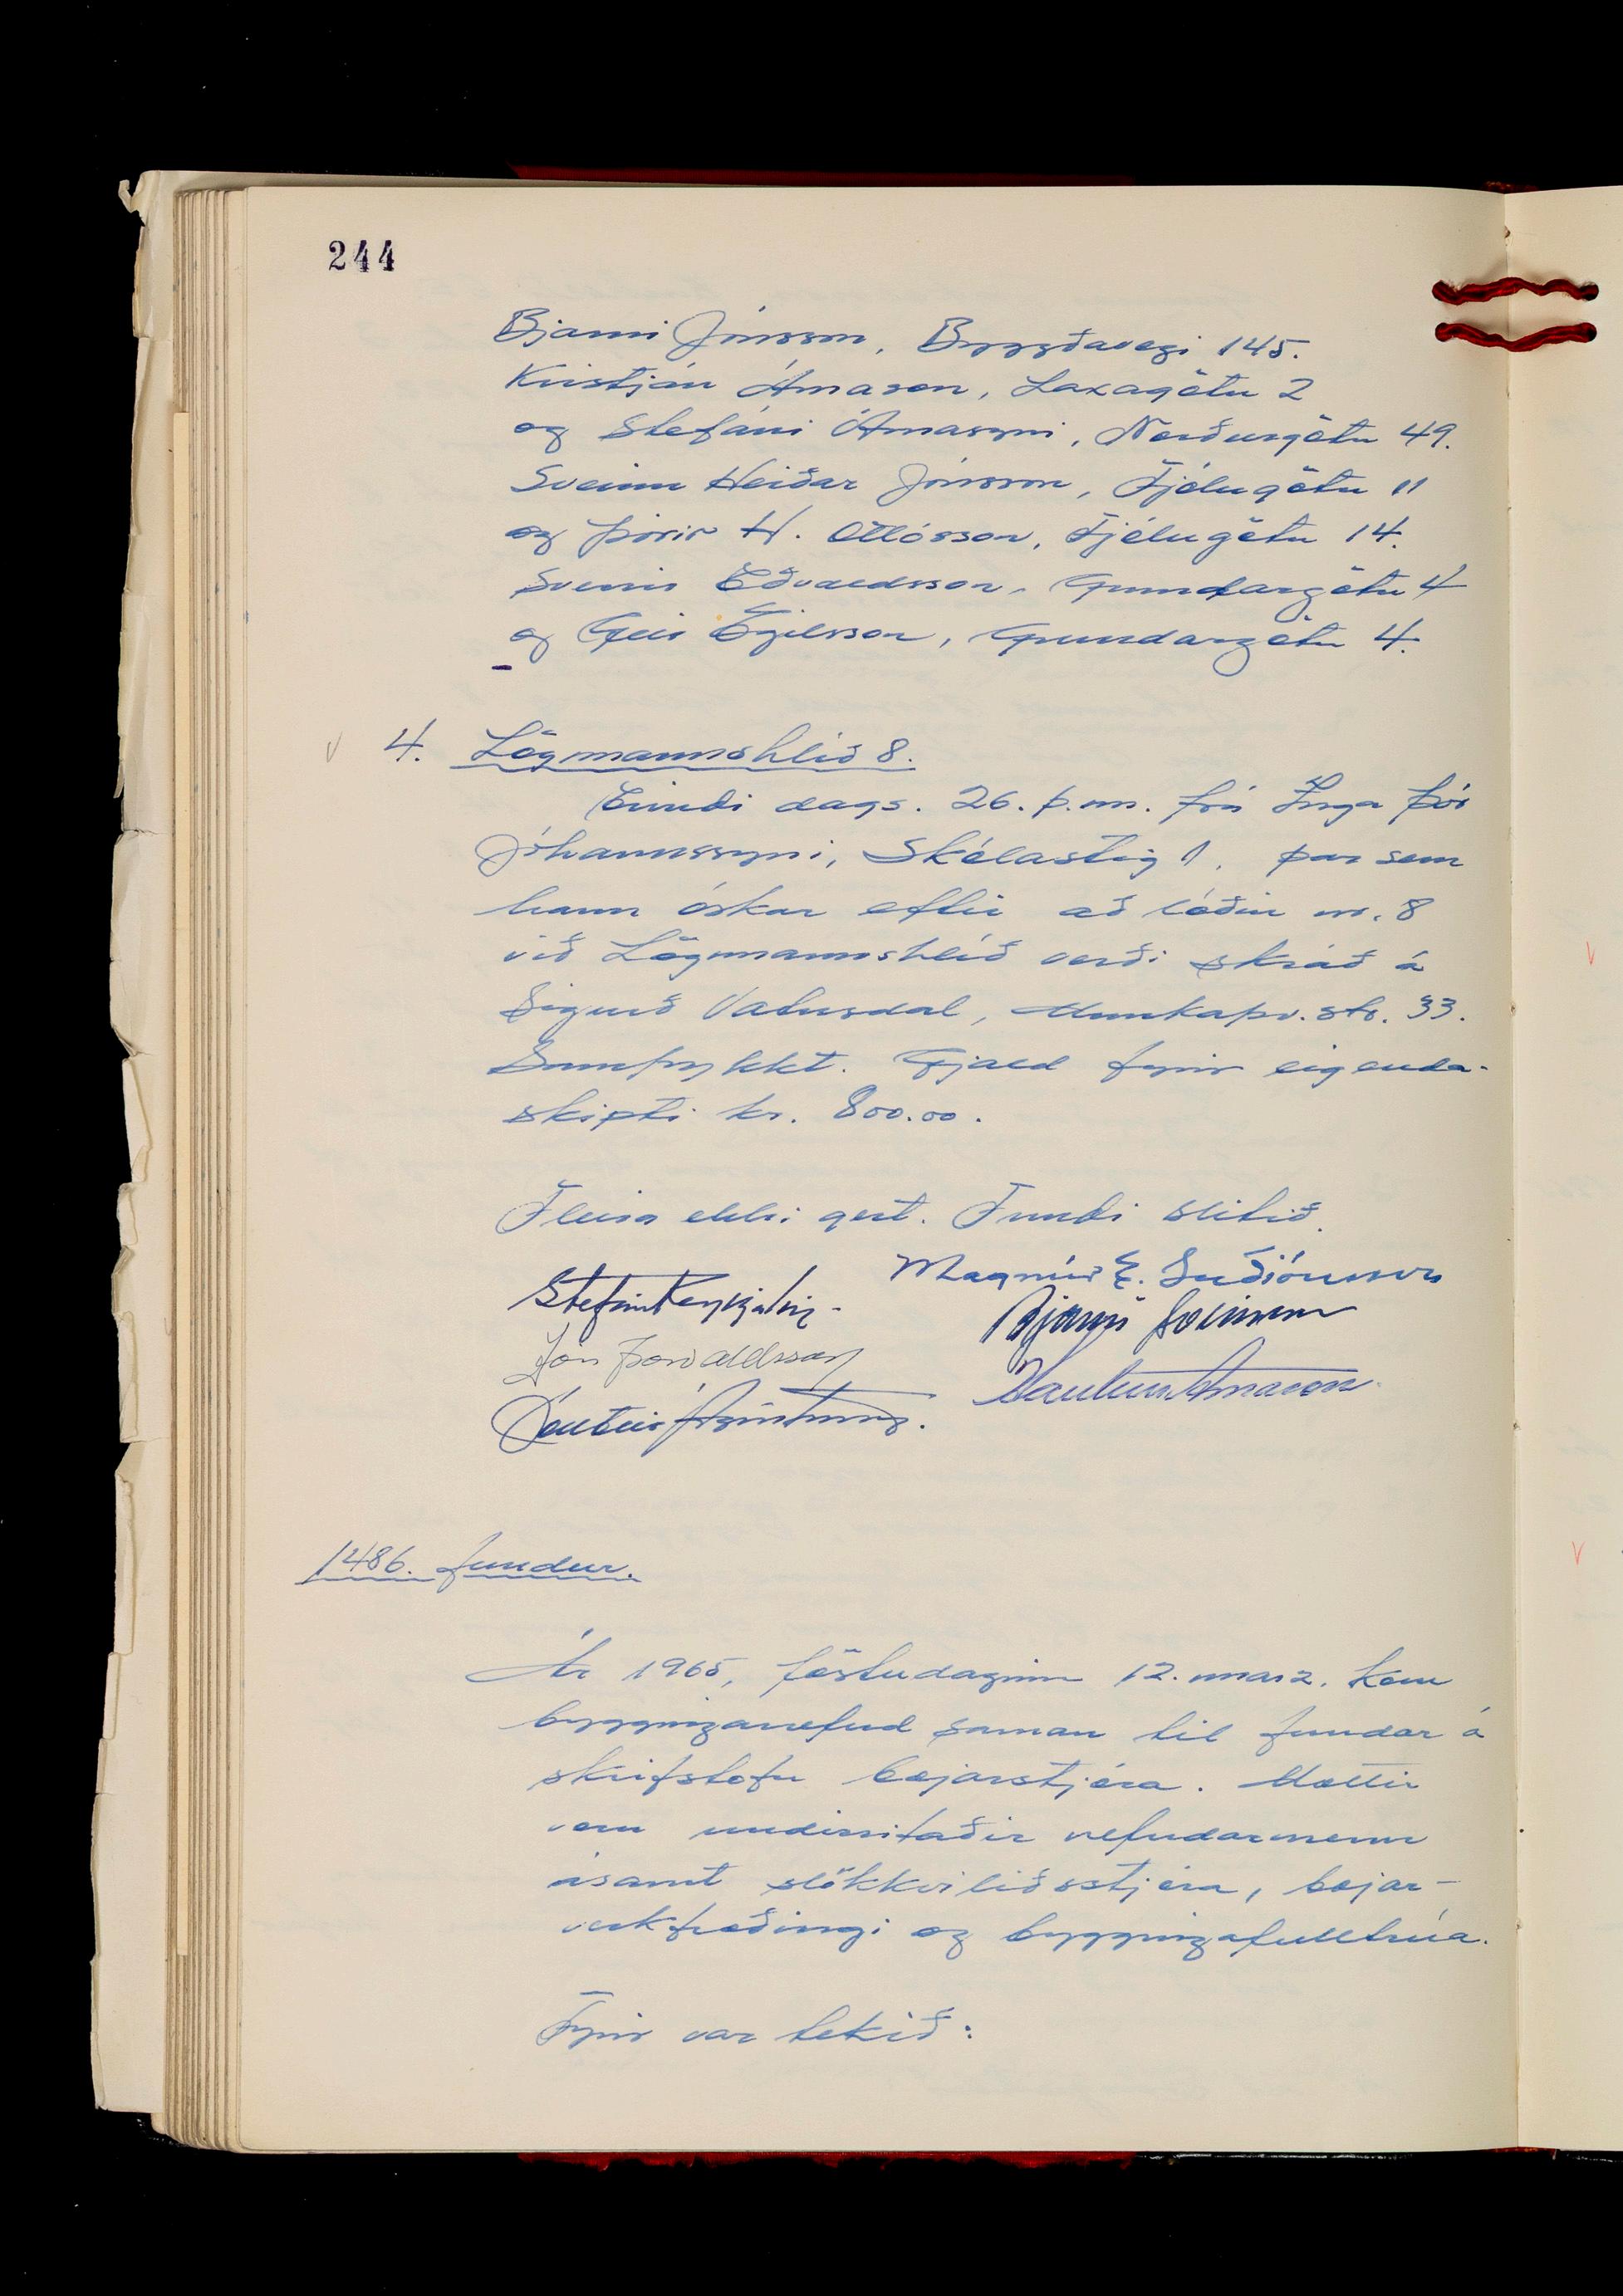 244
Bjarni Jónsson, Byggðavegi 145.
Kristján Árnason, Laxagötu 2
og Stefáni Árnasyni, Norðurgötu 49.
Sveinn Heiðar Jónsson, Fjólugötu 11
og Þórir H. Ottósson, Fjólugötu 14.
Sverrir Eðvaldsson, Grundargötu 4
og Geir Egilsson, Grundargötu 4.
4. Lögmannshlíð 8.
Erindi dags. 26. þ.m. frá Inga Þór
Jóhannssyni, Skólastíg 1, þar sem
hann óskar eftir að lóðin nr. 8
við Lögmannshlíð verði skráð á
Sigurð Vatnsdal, Munkaþv.str. 33.
Samþykkt. Gjald fyrir eigenda-
skipti kr. 800.00.
Fleira ekki gert. Fundi slitið.
Magnús E. Guðjónsson
Stefán Reykjalín.
Bjarni Sveinsson
Jón Þorvaldsson
Haukur Árnason
1486. fundur.
Ár 1965, föstudaginn 12. marz. kom
bygginganefnd saman til fundar á
skrifstofu bæjarstjóra. Mættir
voru undirritaðir nefndarmenn
ásamt slökkviliðsstjóra, bæjar-
verkfræðingi og byggingafulltrúa.
Fyrir var tekið: